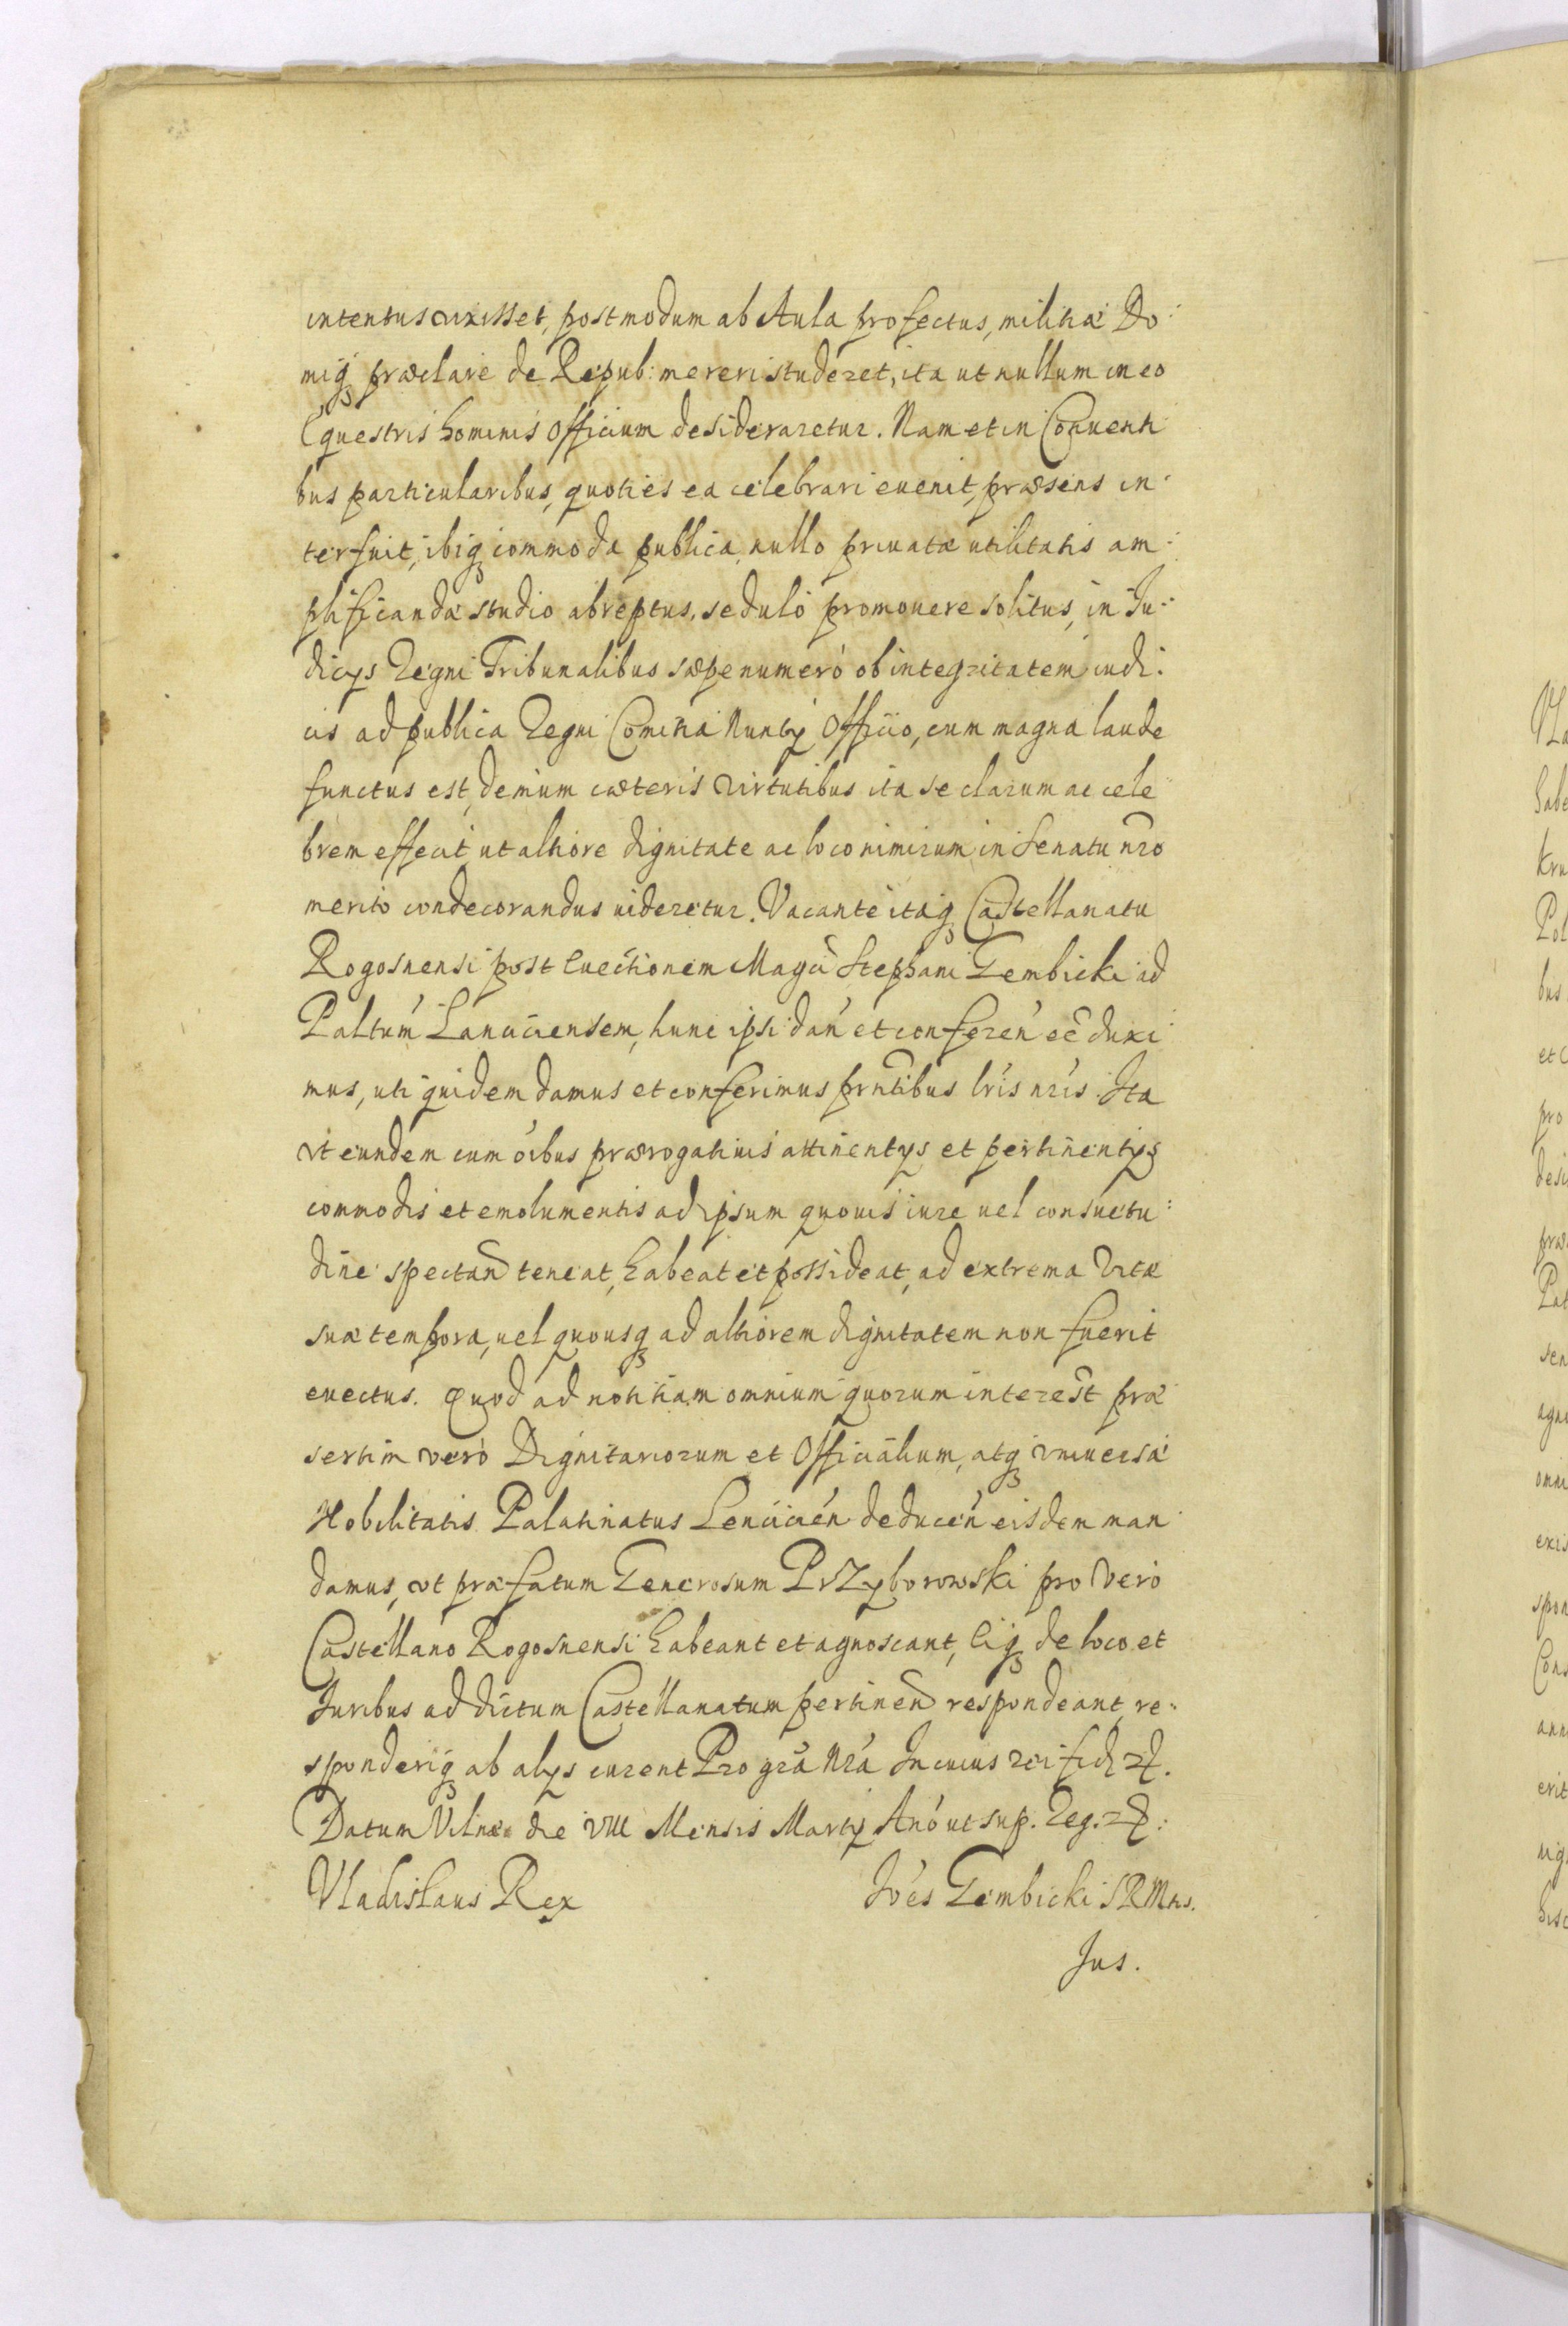 intentus vixisset, postmodum ab Aula profectus, militiæ Do:
miq₃ præclare de Repub: mereri studeret, ita ut nullum in eo
Equestris hominis officium desideraretur. Nam et in Conventi
bus particularibus, quoties ea celebrari evenit, præsens in:
terfuit, ibiq₃ commoda publica, nullo privatæ utilitatis am:
plificandæ studio abreptus, sedulò promovere solitus, in Iu:
dicys Regni Tribunalibus sæpenumerò ob integritatem iudi:
cis ad publica Regni Comitia Nuntÿ Officio, cum magna laude
functus est, demum cæteris virtutibus ita se clarum ac cele
brem effecit ut altiore dignitate ac loco nimirum in Senatu nr̃o
merito condecorandus videretur. Vacante itaq₃ Castellanatu
Rogosnensi post Evectionem Magci Stephani Gembicki ad
Paltum Lanciciensem, hunc ipsi dan̄ et conferen̄ eē duxi
mus, uti quidem damus et conferimus prñtibus lrīs nrīs. Ita
vt eundem cum oībus prærogativis attinentys et pertinentÿs
commodis et emolumentis ad ipsum quovis iure vel consuetu:
dine spectan̄ teneat, habeat et possideat, ad extrema vitæ
suæ tempora, vel quousq₃ ad altiorem dignitatem non fuerit
evectus. Quod ad notitiam omnium quorum interest præ
sertim verò Dignitariorum et Officialium, atq₃ vniversæ
Nobilitatis Palatinatus Lencicien̄ deducen̄ eisdem man
damus, vt præfatum Generosum Przyborowski pro vero
Castellano Rogosnensi habeant et agnoscant, Eiq₃ de loco et
Iuribus ad dictum Castellanatum pertinen̄ respondeant, re:
sponderiq₃ ab alys curent Pro gr̄a Nr̄a In cuius rei fid etc.
Datum Vilnæ die VIII Mensis Martÿ Ano ut sup. Reg. etc:
Vladislaus Rex Ioēs Gembicki S R Mtis.
Ius.